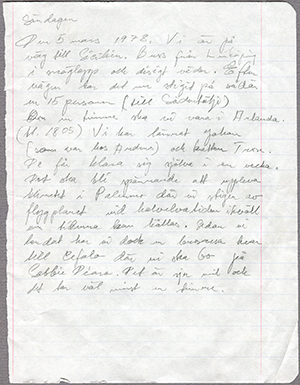 Söndagen
Den 5 mars 1978. Vi är på
väg till Sicilien. Buss från Linköping
i snöslapp och disigt väder. Efter
vägen har det nu stigit på sådan
en 15 personer (till Södertälje)
Om en timme ska vi vara i Arlanda.
(kl. 1805) Vi har lämnat
(som var hos Anders) och katten Trisse.
De får klara sig själva i en vecka.
Det ska bli spännande att uppleva
i Palermo där vi stiger av
flygplanet vid halvelvatiden ikväll
om tiderna kan hållas. Sedan vi
landat har vi dock en bussresa kvar
till Cefalù där vi ska bo på
Det är sju mil och
det tar väl minst en timme.